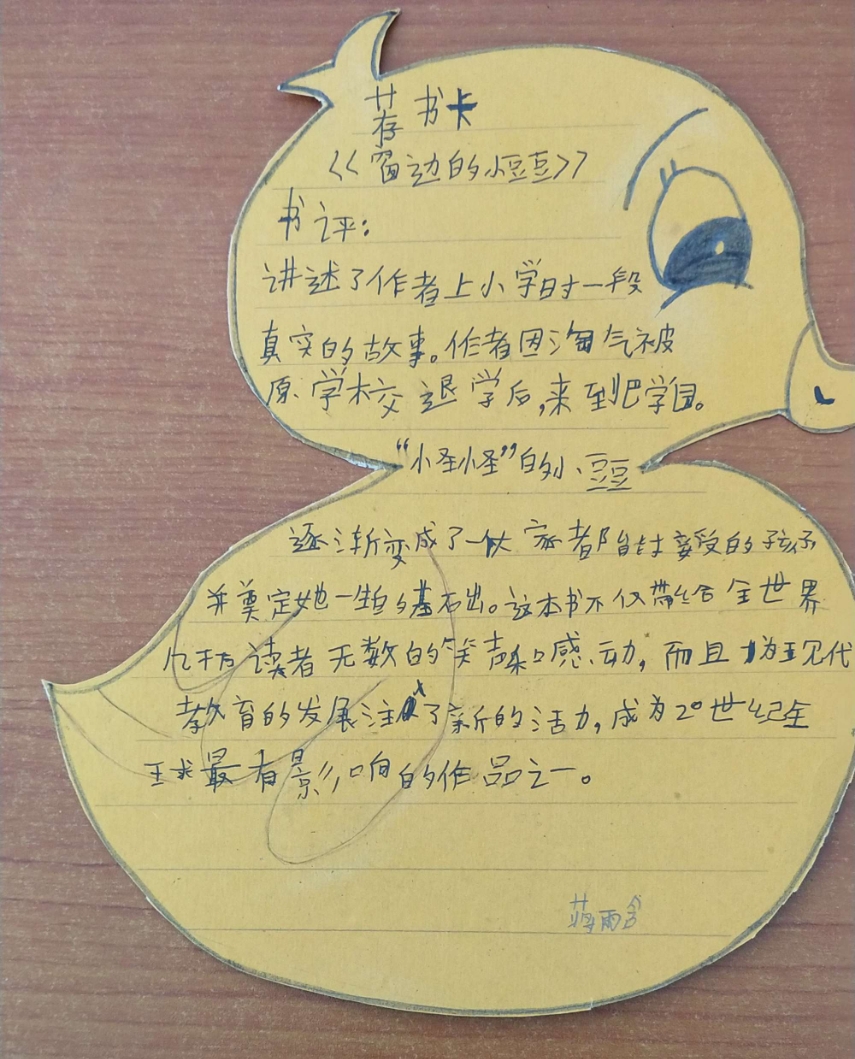 荐书卡
《窗边的小豆豆》
书评:
讲述了作者上小学时一段
真实的故事。作者因淘气被
原学校退学后,来到巴学园。
“小圣小怪”的小豆豆
逐渐变成了一伙家都能接受的孩子
并奠定她一生的基石出。这本书不仅带给全世界
几千万读者无数的笑声和感动,而且为现代
教育的发展注入了新的活力,成为20世纪全
球最有影响的作品之一。
蒋雨含